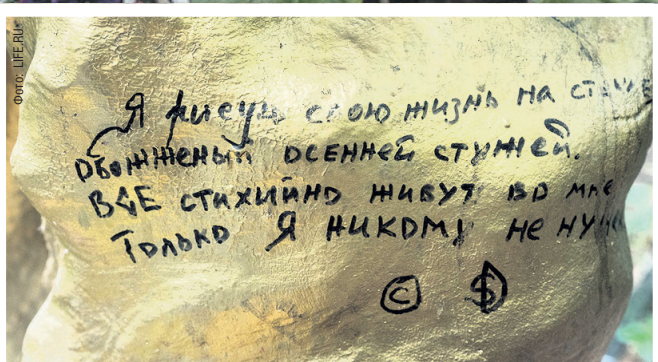 Фото: LIFE.RU*
Я рисую свою жизнь на
Обожженый осенней стужей.
ВСЕ стихийно живут во мне
Только Я никому не
© $